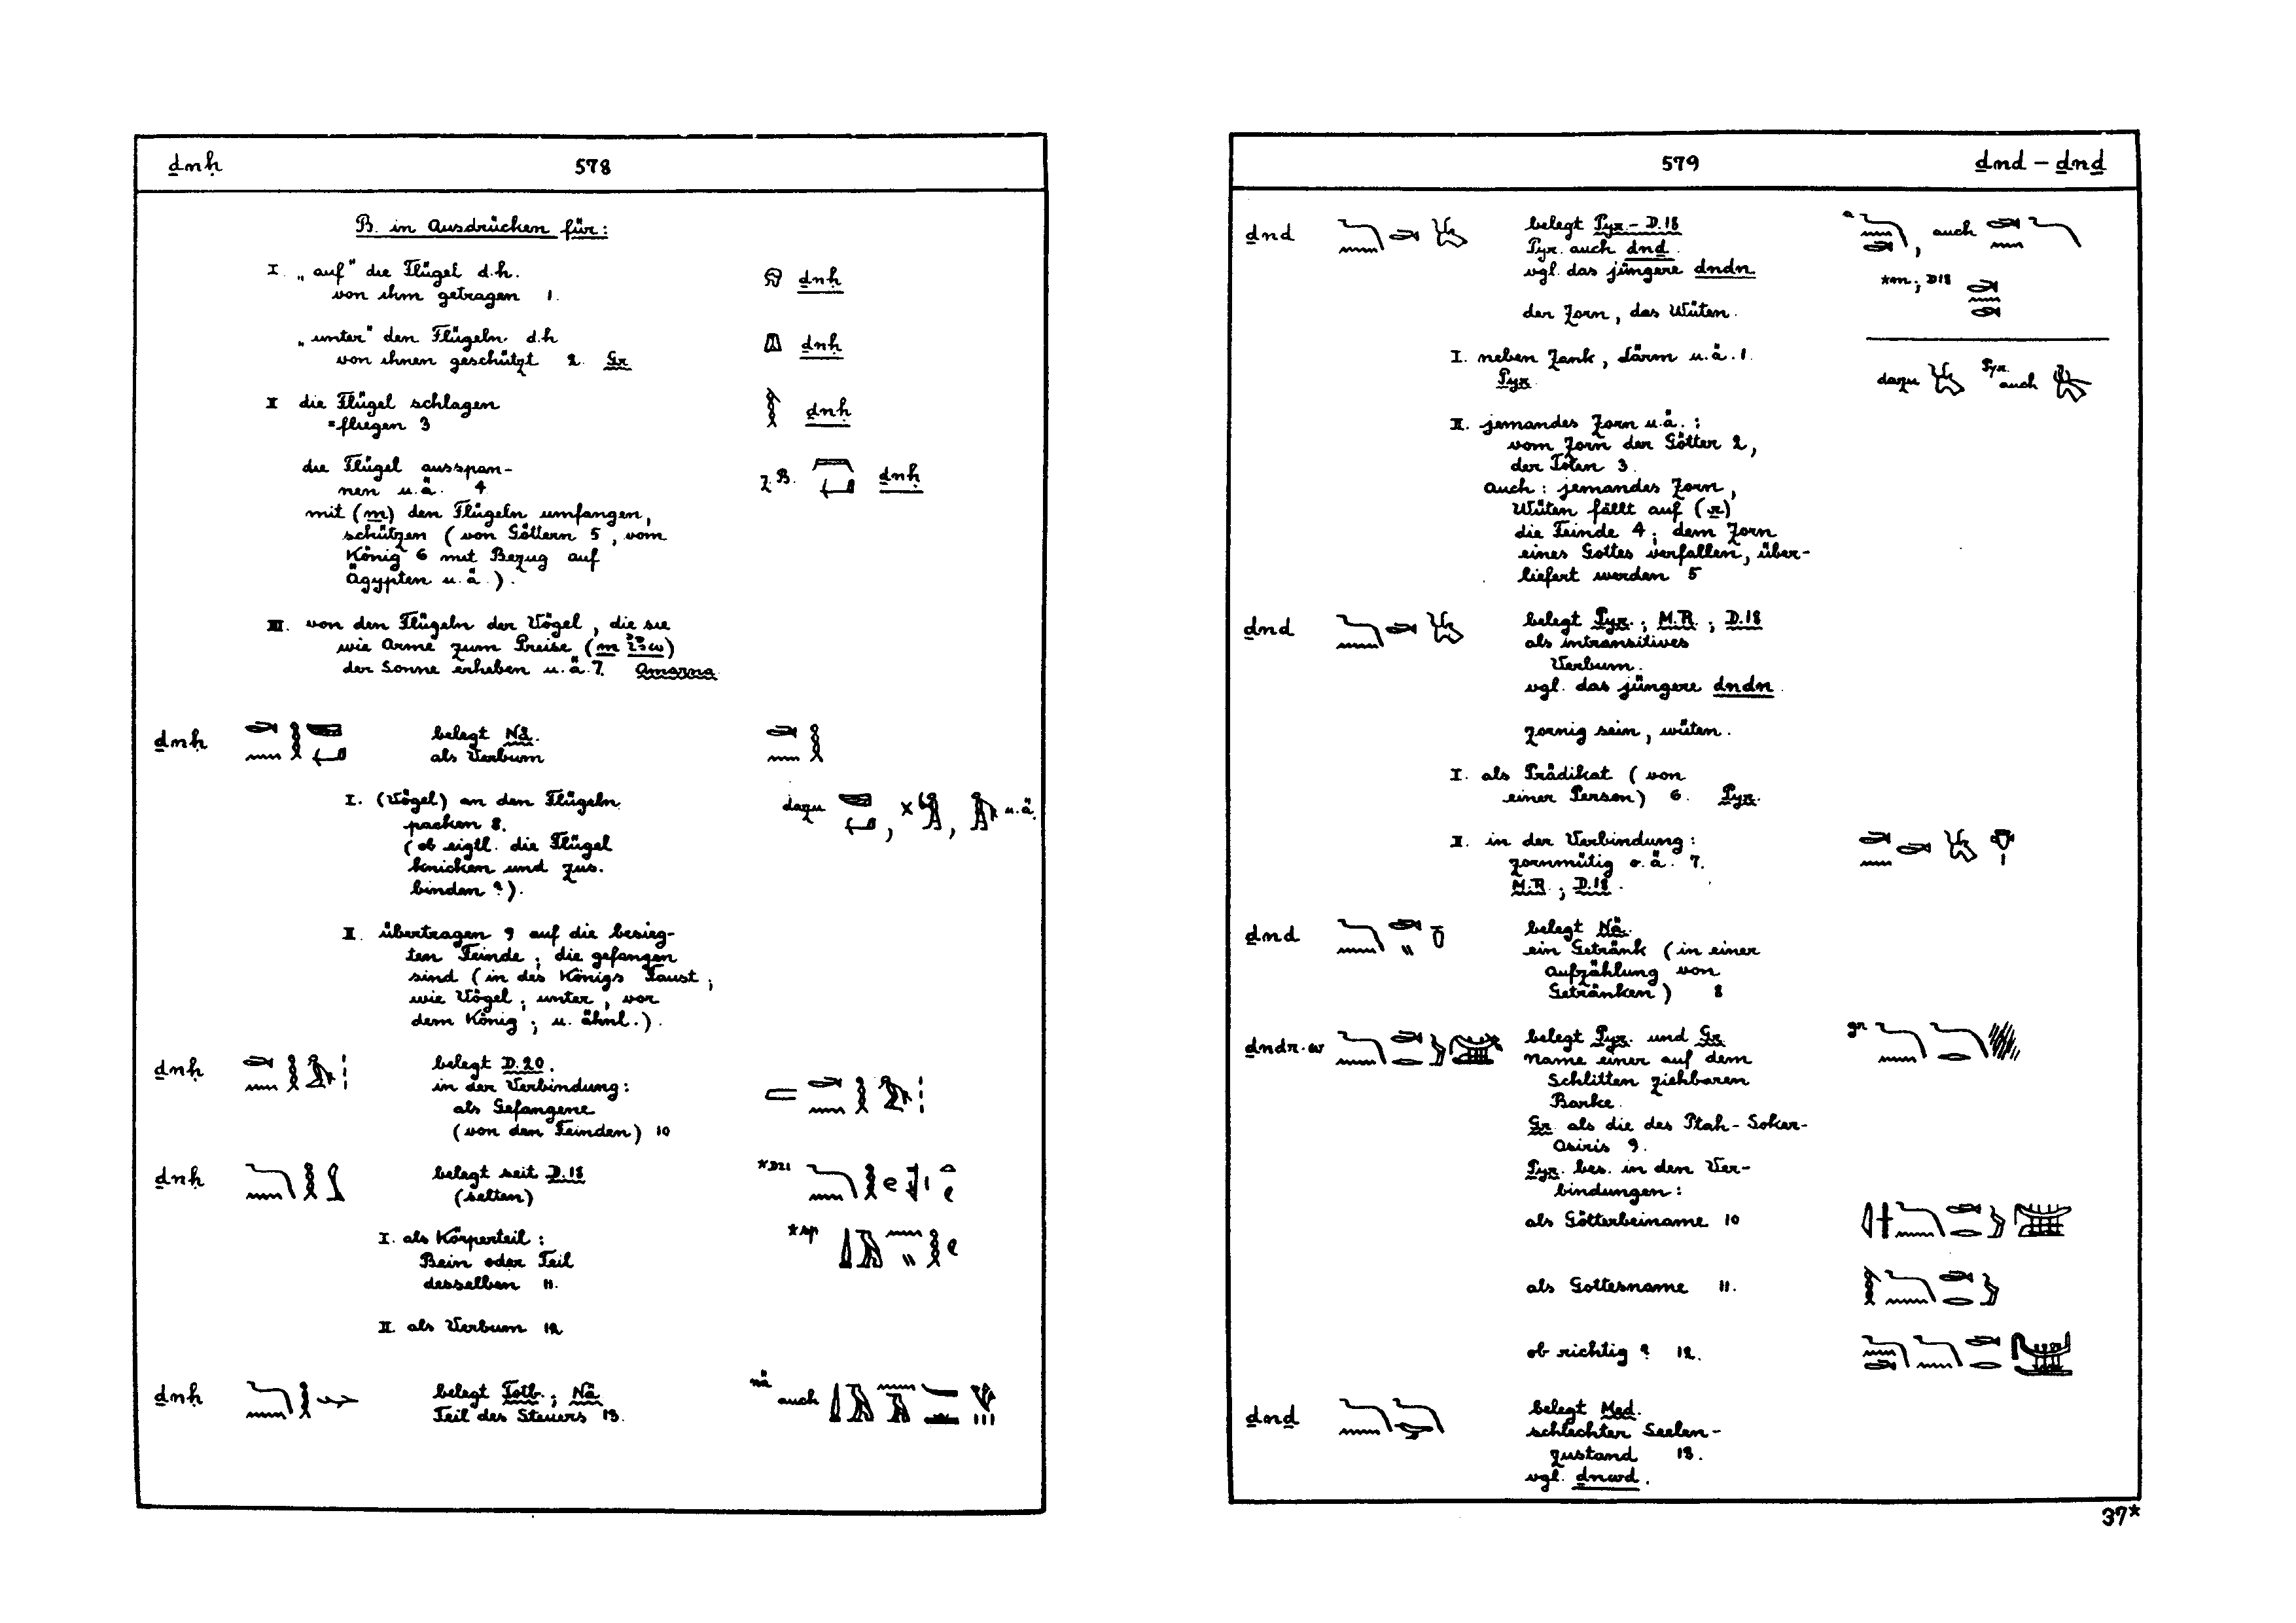 ḏnḥ 578
B. in Ausdrücken für:
I. „auf" die Flügel d.h. ḏnḥ
von ihm getragen 1.
„unter" den Flügeln d.h. ḏnḥ
von ihnen geschützt 2. Gr
II die Flügel schlagen ḏnḥ
= fliegen 3
die Flügel ausspan- z.B. ḏnḥ
nen u.ä. 4
mit (m) den Flügeln umfangen,
schützen (von Göttern 5, vom
König 6 mit Bezug auf
Ägypten u.ä.).
III. von den Flügeln der Vögel, die sie
wie Arme zum Preise (m ı͗ꜣw)
der Sonne erheben u.ä. 7. Amarna
ḏnḥ belegt Nä.
als Verbum
I. (Vögel) an den Flügeln dazu , , u.ä.
packen 8.
(ob eigtl. die Flügel
knicken und zus.
binden?).
II. übertragen 9 auf die besieg-
ten Feinde; die gefangen
sind (in des Königs Faust;
wie Vögel; unter, vor
dem König; u. ähnl.).
ḏnḥ belegt D.20.
in der Verbindung:
als Gefangene
(von den Feinden) 10
ḏnḥ belegt seit D.18 *D21
(selten)
I. als Körperteil: *sp
Bein oder Teil
desselben 11.
II. als Verbum 12
ḏnḥ belegt Totb.; Nä nä auch
Teil des Steuers 13.
579 ḏnd – ḏnḏ
ḏnd belegt Pyr – D.18 a , auch
Pyr. auch ḏnḏ.
vgl. das jüngere dndn. *m; D18
der Zorn, das Wüten.
I. neben Zank, Lärm u.ä. 1.
Pyr. dazu Pyr. auch
II. jemandes Zorn u.ä.:
vom Zorn der Götter 2,
der Toten 3.
auch: jemandes Zorn,
Wüten fällt auf (r)
die Feinde 4; dem Zorn
eines Gottes verfallen, über-
liefert werden 5
ḏnd belegt Pyr.; M.R.; D.18
als intransitives
Verbum.
vgl. das jüngere dndn.
zornig sein, wüten.
I. als Prädikat (von
einer Person) 6. Pyr.
II. in der Verbindung:
zornmütig o.ä. 7.
M.R.; D.18.
ḏnd belegt Nä.
ein Getränk (in einer
Aufzählung von
Getränken) 8
ḏndr·w belegt Pyr. und Gr gr
Name einer auf dem
Schlitten ziehbaren
Barke.
Gr als die des Ptah-Soker-
Osiris 9.
Pyr. bes. in den Ver-
bindungen:
als Götterbeiname 10
als Gottesname 11.
ob richtig? 12.
ḏnḏ belegt Med.
schlechter Seelen-
zustand 13.
vgl. ḏnwd.
37*